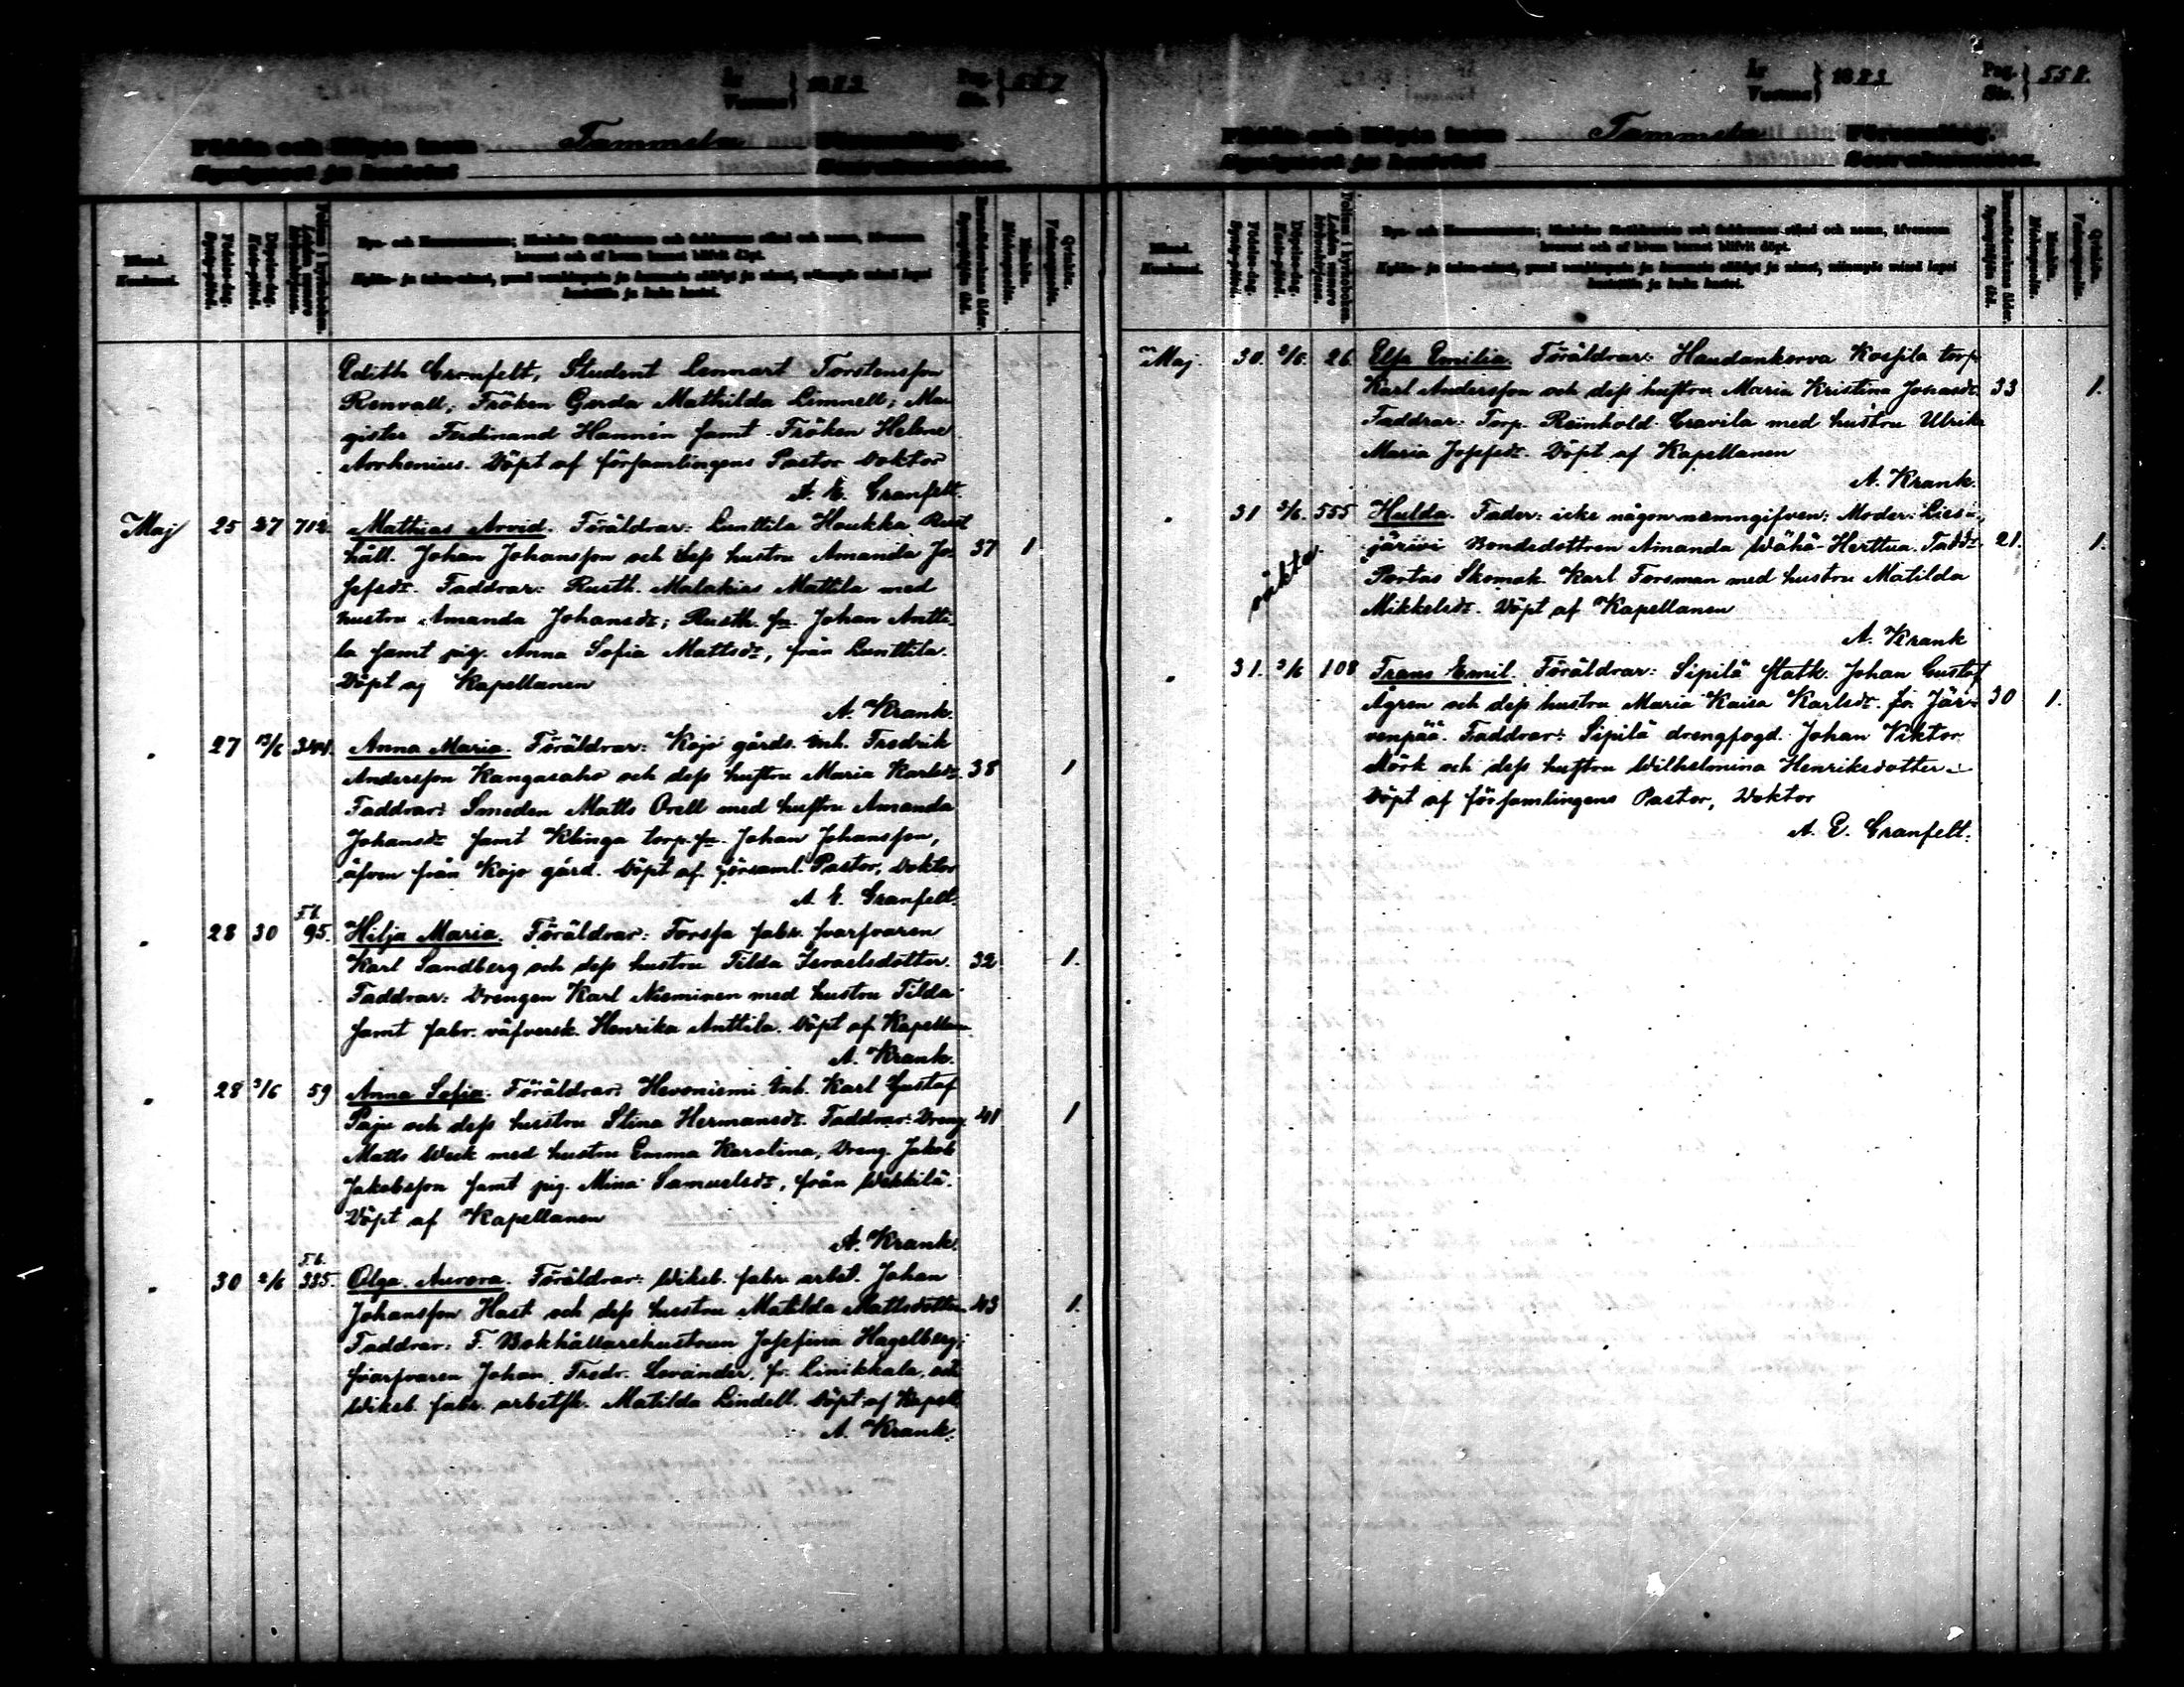 År
Vuonna } 1883
Pag.
Siv. } 557
Födda och Döpta inom Tammela Församling.
Syntyneet ja kastetut Seurakunnassa.
Månad.
Kuukausi.
Födelse-dag.
Syntymä-päivä.
Döpelse-dag.
Kaste-päivä.
Qvinkön.
Mankön.
By- och Hemmansnamn; Föräldrars
hvarest och af hvem barnet blifvit döpt.
kastettiin ja kuka kastoi.
Edith Cranfelt, Student Lennart Torstensson
Renvall, Fröken Gerda Mathilda Limnell, Ma-
gister Ferdinand Hannén samt Fröken Helene
Arrhenius. Döpt af församlingens Pastor Doktor
A. E. Granfelt.
Maj 25 27 712. Mathias Arvid. Föräldrar: Lunttila Houkka Rust
håll. Johan Johansson och dess hustru Amanda Jo- 37 1
sefsdr. Faddrar: Rusth. Malakias Mattila med
hustru Amanda Johansdr; Rusth. sn. Johan Antti-
la samt pig. Anna Sofia Mattsdr, från Lunttila.
Döpt af Kapellanen
A. Krank.
" 27 13/6 344. Anna Maria. Föräldrar: Kojo gårds inh. Fredrik
Andersson Kangasaho och dess hustru Maria Karlsdr. 38 1
Faddrar: Smeden Matts Orell med hustru Amanda
Johansdr samt Klinga torp. sn. Johan Johansson,
äfven från Kojo gård. Döpt af församl. Pastor, Doktor
A. E. Granfelt.
" 28 30 F.b. 95. Hilja Maria. Föräldrar: Forssa fabr. svarfvaren
Karl Sandberg och dess hustru Tilda Israelsdotter. 32 1.
Faddrar: Drengen Karl Nieminen med hustru Tilda
samt fabr. väfversk. Henrika Anttila. Döpt af Kapellan
A. Krank.
" 28 3/6 59 Anna Sofia. Föräldrar: Hevoniemi Inh. Karl Gustaf
Paju och dess hustru Stina Hermansdr. Faddrar: Dreng. 41 1
Matts Week med hustru Emma Karolina, Dreng. Jakob
Jakobsson samt pig. Mina Samuelsdr, från Wekkilä.
Döpt af Kapellanen
A. Krank.
" 30 2/6 F.b. 335. Olga Aurora. Föräldrar: Wikeb. fabr. arbet. Johan
Johansson Hast och dess hustru Matilda Mattsdotter 43 1.
Faddrar: F. Bokhållarehustrun Josefina Hagelberg;
svarfvaren Johan Fredr. Lovander, fr. Linikkala, och
Wikeb. fabr. arbetsk. Matilda Lindell. Döpt af Kapell.
A. Krank.
År
Vuonna } 1883
Pag.
Siv. } 558.
Födda och Döpta inom Tammela Församling.
Syntyneet ja kastetut Seurakunnassa.
Månad.
Kuukausi.
hvarest och af hvem barnet blifvit döpt.
kastettiin ja kuka kastoi.
Maj. 30. 3/6. 26 Elsa Emilia. Föräldrar: Haudankorva Kossila torp.
Karl Andersson och dess hustru Maria Kristina Jonasdr. 33 1.
Faddrar: Torp. Reinhold Cravila med hustru Ulrika
Maria Josefsdr. Döpt af Kapellanen
A. Krank.
" 31 3/6. 555 Hulda. Fader: icke någon namngifven; Moder: Liesi-
järwi Bondedottren Amanda Wähä-Herttua. Faddr. 21. 1.
oäkta.
Portas Skomak. Karl Forsman med hustru Matilda
Mikkelsdr. Döpt af Kapellanen
A. Krank
" 31. 3/6 108 Frans Emil. Föräldrar: Sipilä Statk. Johan Gustaf
Ågren och dess hustru Maria Kaisa Karlsdr. fr. Jär- 30 1.
venpää. Faddrar: Sipilä drengfogd. Johan Viktor
Mörk och dess hustru Wilhelmina Henriksdotter.
Döpt af församlingens Pastor, Doktor
A. E. Granfelt.